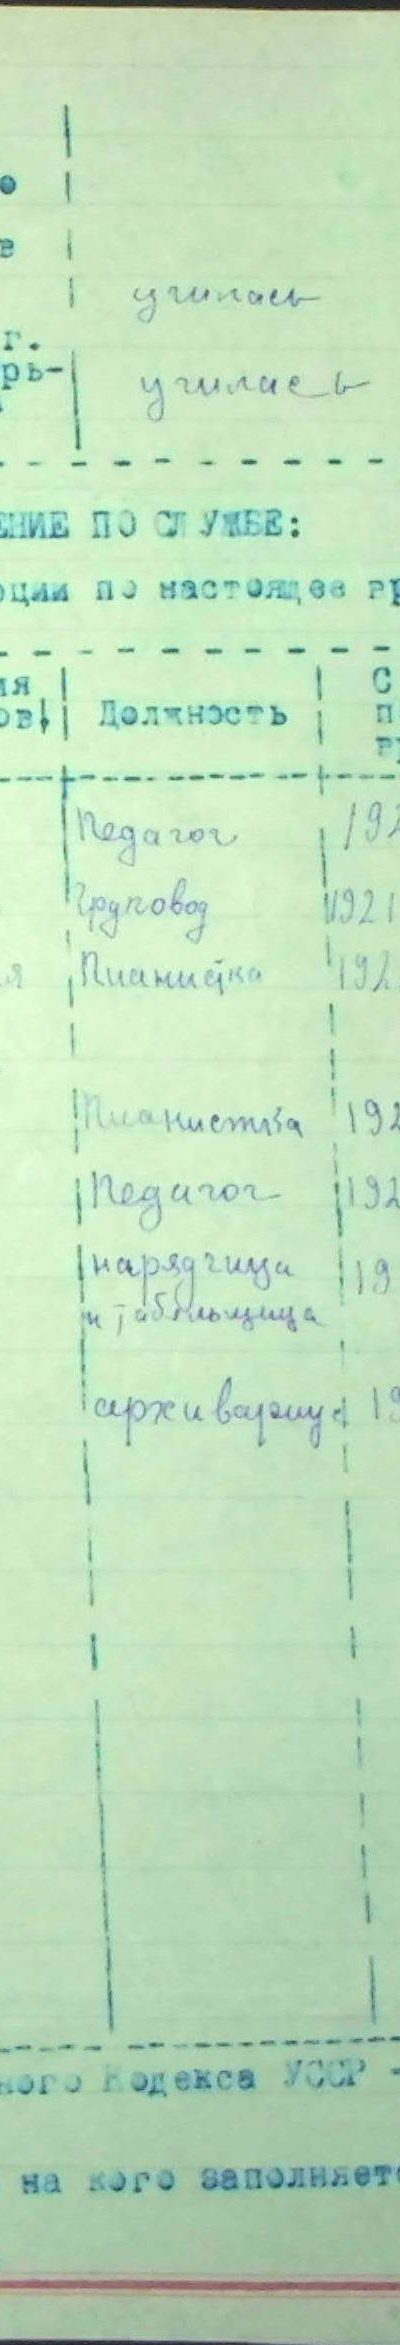 о
в
училась
г.
рь-
училась
ЕНИЕ ПО СЛУЖБЕ:
юции по настоящее вр
ия
ов
Должность
С
п
вр
Педагог 192
Груповод 1921
я Пианистка 192
Пианистка 192
Педагог 192
нарядчица 19
и табельщица
архивариус 19
ного Кодекса УССР -
на кого заполняетс